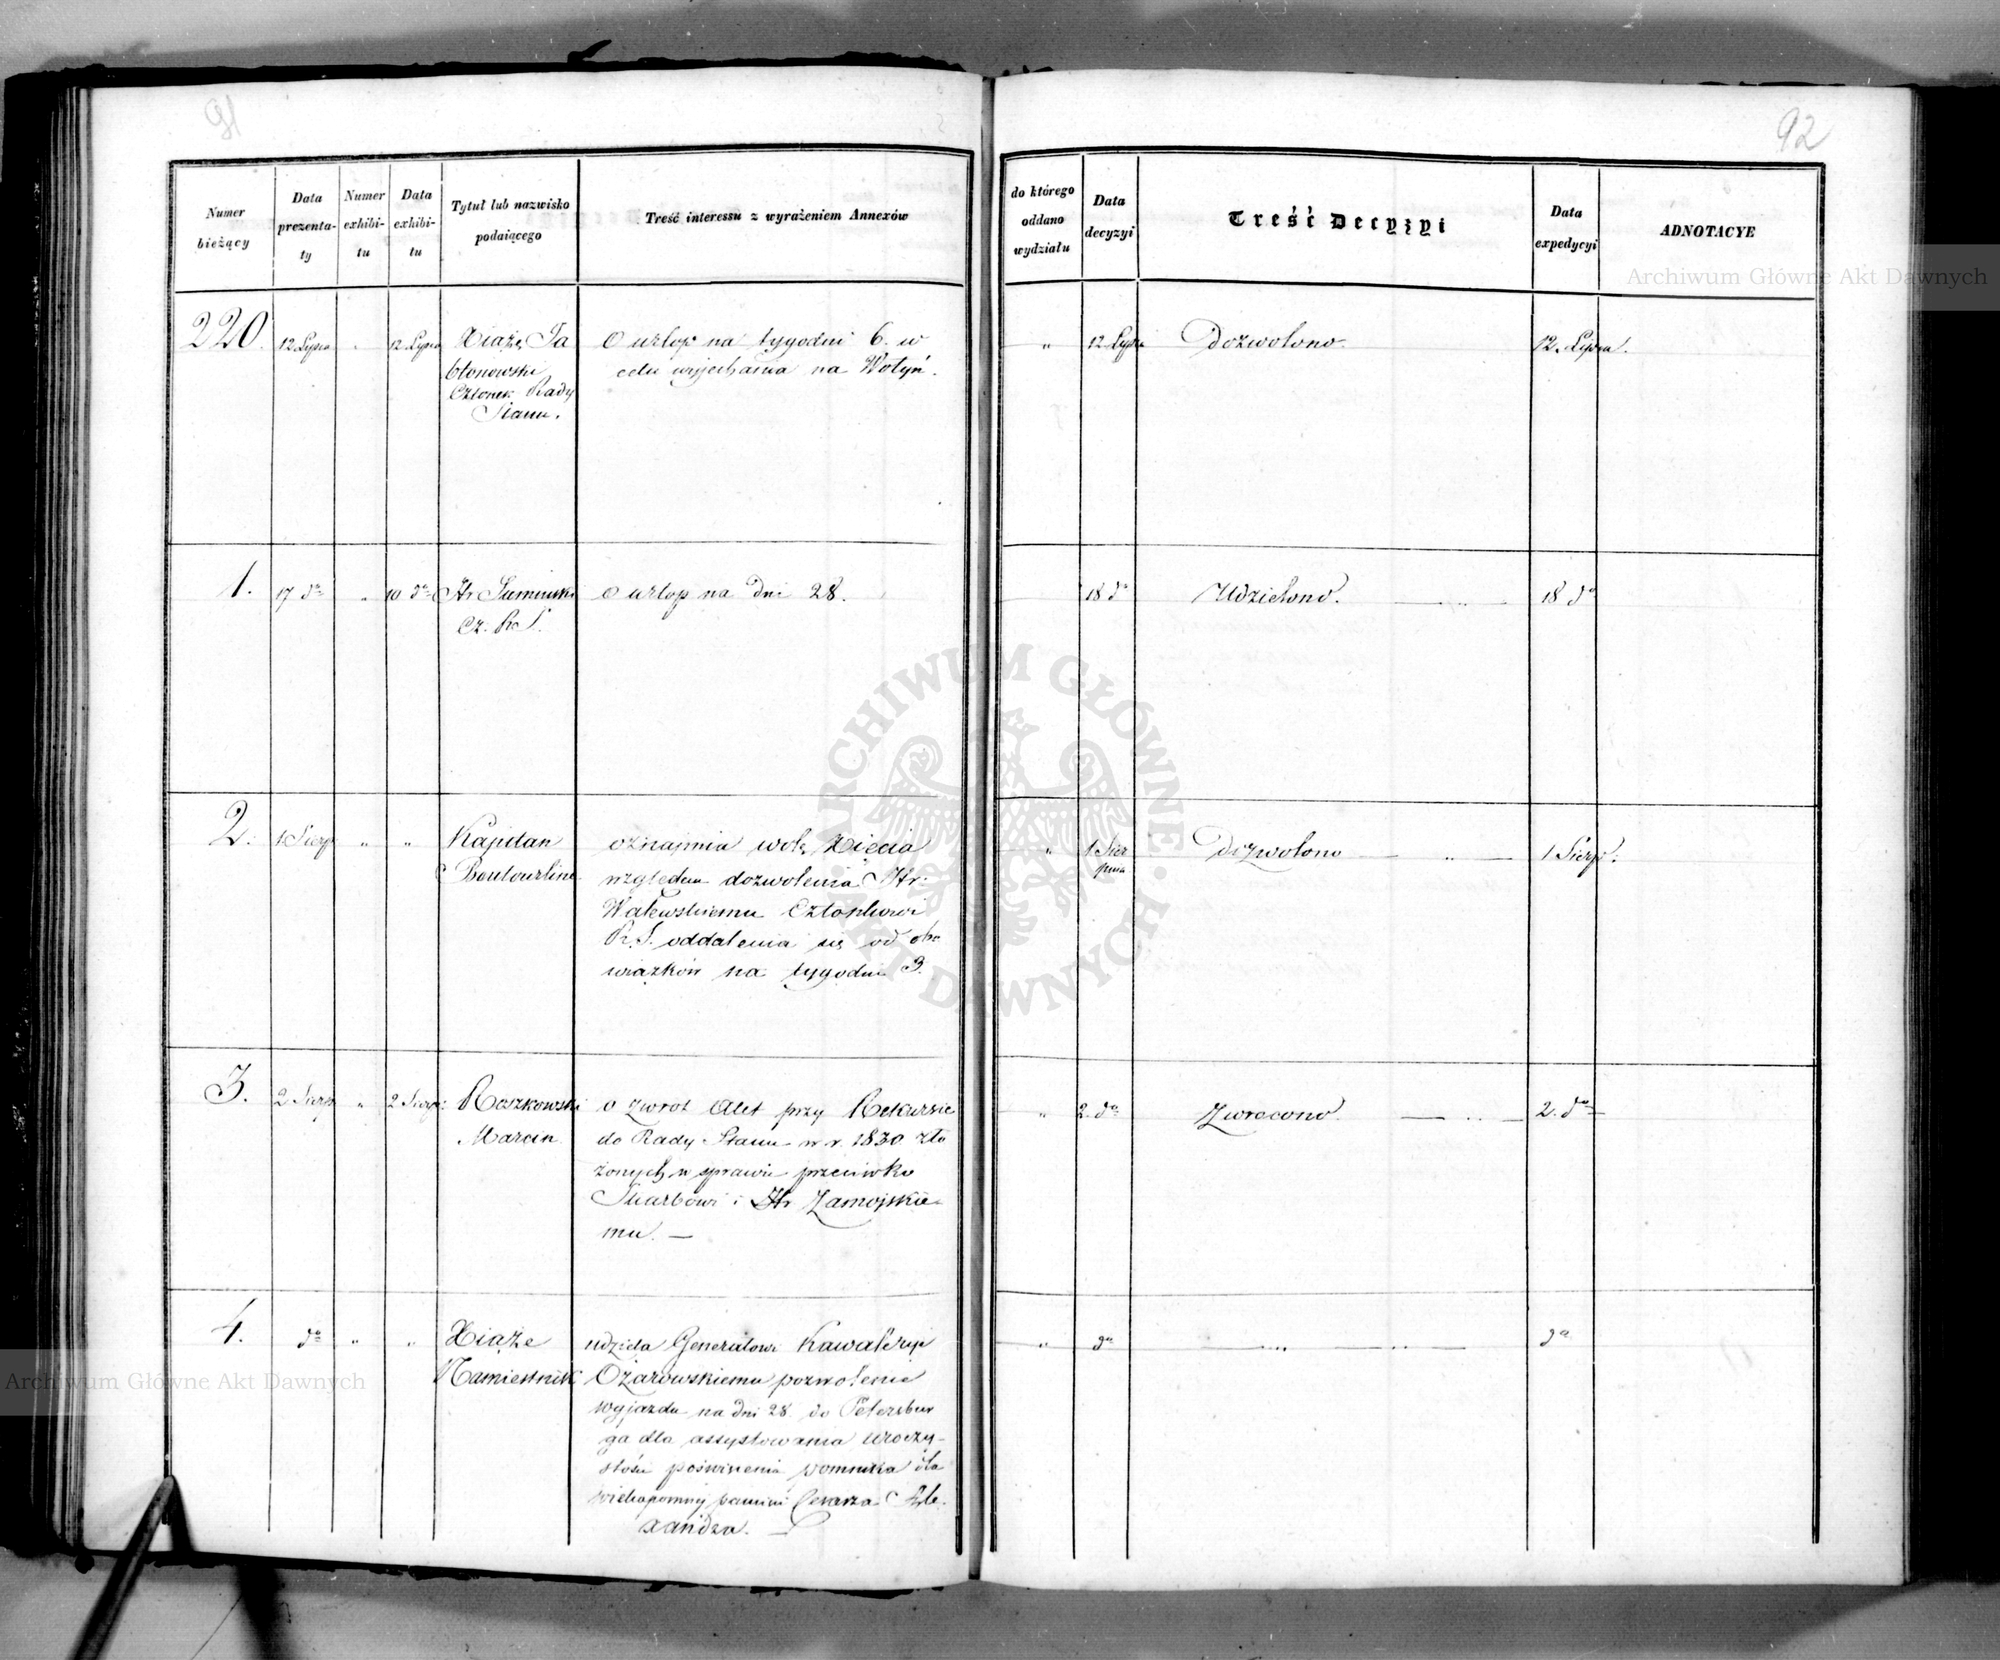 91
92
Numer bieżący
Data prezentaty
Numer exhibitu
Data exhibitu
Tytuł lub nazwisko podaiącego
Treść interessu z wyrażeniem Annexów
do którego oddano wydziału
Data decyzyi
Treść Decyzyi
Data expedycyi
ADNOTACYE
220. 12 Lipca " 12 Lipca Xiąże Ja O urlop na tygodni 6. w " 12 Lipca Dozwolono. 12. Lipca.
błonowski celu wyjechania na Wołyń.
Członek Rady
Stanu.
1. 17 do " 10 do Hr Sumiński O urlop na dni 28. 18 do Udzielono. 18 do
Cz. R. S.
2. 1 Sierp " " Kapitan oznajmia wolę Xięcia " 1 Sier Dozwolono " 1 Sierp.
Boutourline względem dozwolenia Hr. pnia
Walewskiemu Członkowi
R. S. oddalenia się od obo
wiązków na tygodni 3.
3. 2 Sierp " 2 Sierp. Roszkowski o zwrot Akt przy Rekursie " 2. do Zwrócono. 2. do
Marcin do Rady Stanu w r. 1830 zło
żonych w sprawie przeciwko
Skarbowi i Hr Zamojskie
mu. —
4. do " " Xiąże udziela Generałowi Kawaleryi " do do
Namiestnik Ożarowskiemu pozwolenie
wyjazdu na dni 28. do Petersbur
ga dla assystowania uroczy-
stości poświęcenia pomnika dla
wiekopomnej pamięci Cesarza Ale
xandra. —
Archiwum Główne Akt Dawnych
ARCHIWUM GŁÓWNE AKT DAWNYCH
Archiwum Główne Akt Dawnych